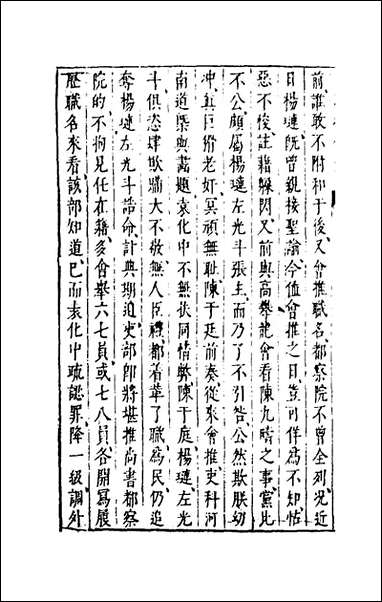 前誰敢不附和于後又分推職名都察院不曾全列況近
日楊漣既曾親接聖諭今值會推之日豈可佯為不知怙
惡不悛註籍躲閃又前與高舉龍會看陳九疇之事黨比
不公頗屬楊漣左光斗張主而乃了不引咎公然欺朕幼
冲真巨猾老奸冥頑無耻陳于廷前奏從來會推吏科河
南道槩與蓋題袁化中不無扶同情弊陳于庭楊漣左光
斗俱恣肆欺瞞大不敬無人臣禮都着革了職為民仍追
奪楊漣左光斗誥命計典期迫吏部即將堪推尚書都察
院的不拘見任在籍多會舉六七員或七八員各開寫履
歷職名來看該部知道已而袁化中疏認罪降一級調外